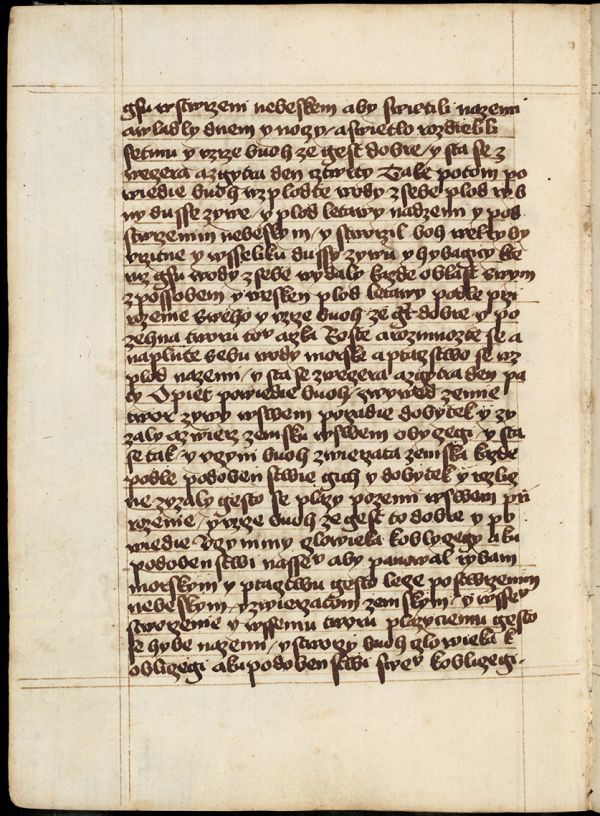 gsu w stwrzeni nebeskem aby swietili nazemi
a wladly dnem y nozy / a swietlo rozdielili
se tmu y vzrze buoh ze gest dobre / y sta se z
wezera a zgytra den cztwrty Take potom po
wiedie buoh wzplodte wody z sebe plod ryb
ny dusse zywe / y plod letawy nadzemi y pod
stwrzenim nebeskym / y stworzil boh welryby
vzitne y wsseliku dussy zywu y hybagicy kte
ruz gsu wody z sebe wydaly kazde oblast swym
zpossobem y wesken plod letawy podle przi
rzenie sweho y vzrze buoh ze gt dobre y po
zehna tworu tov a rzka Roste a rozmnozte se a
naplnte sebu wody morske a ptazstwo se wz
plod nazemi / y sta se z wezera a zgytra den pa
ty Opiet powiedie buoh / zwywed zemie
twor zywy w swem poradie dobytek y zy
zaly a zwierz zemsku w swem obyzegi / y sta
se tak y vzyni buoh zwierzata zemska kazde
podle podobenstwie gich y dobytek y weliz
ne zyzaly gesto se plazy pozemi w swem pri
rozenie / y vzrze buoh ze gest to dobre y po
wiedie Vzynmy zlowieka k oblyzegy aku
podobenstwi nassev aby panowal rybam
morskym y ptazstwu gesto lece po stwrzenim
nebeskym / y zwierzatom zemskym / y wssev
stworzenie y wssemu tworu plazyciemu gesto
se hybe nazemi / y stworzy buoh zlowieka k
oblizegi aku podobenstwi swev k oblizegi.